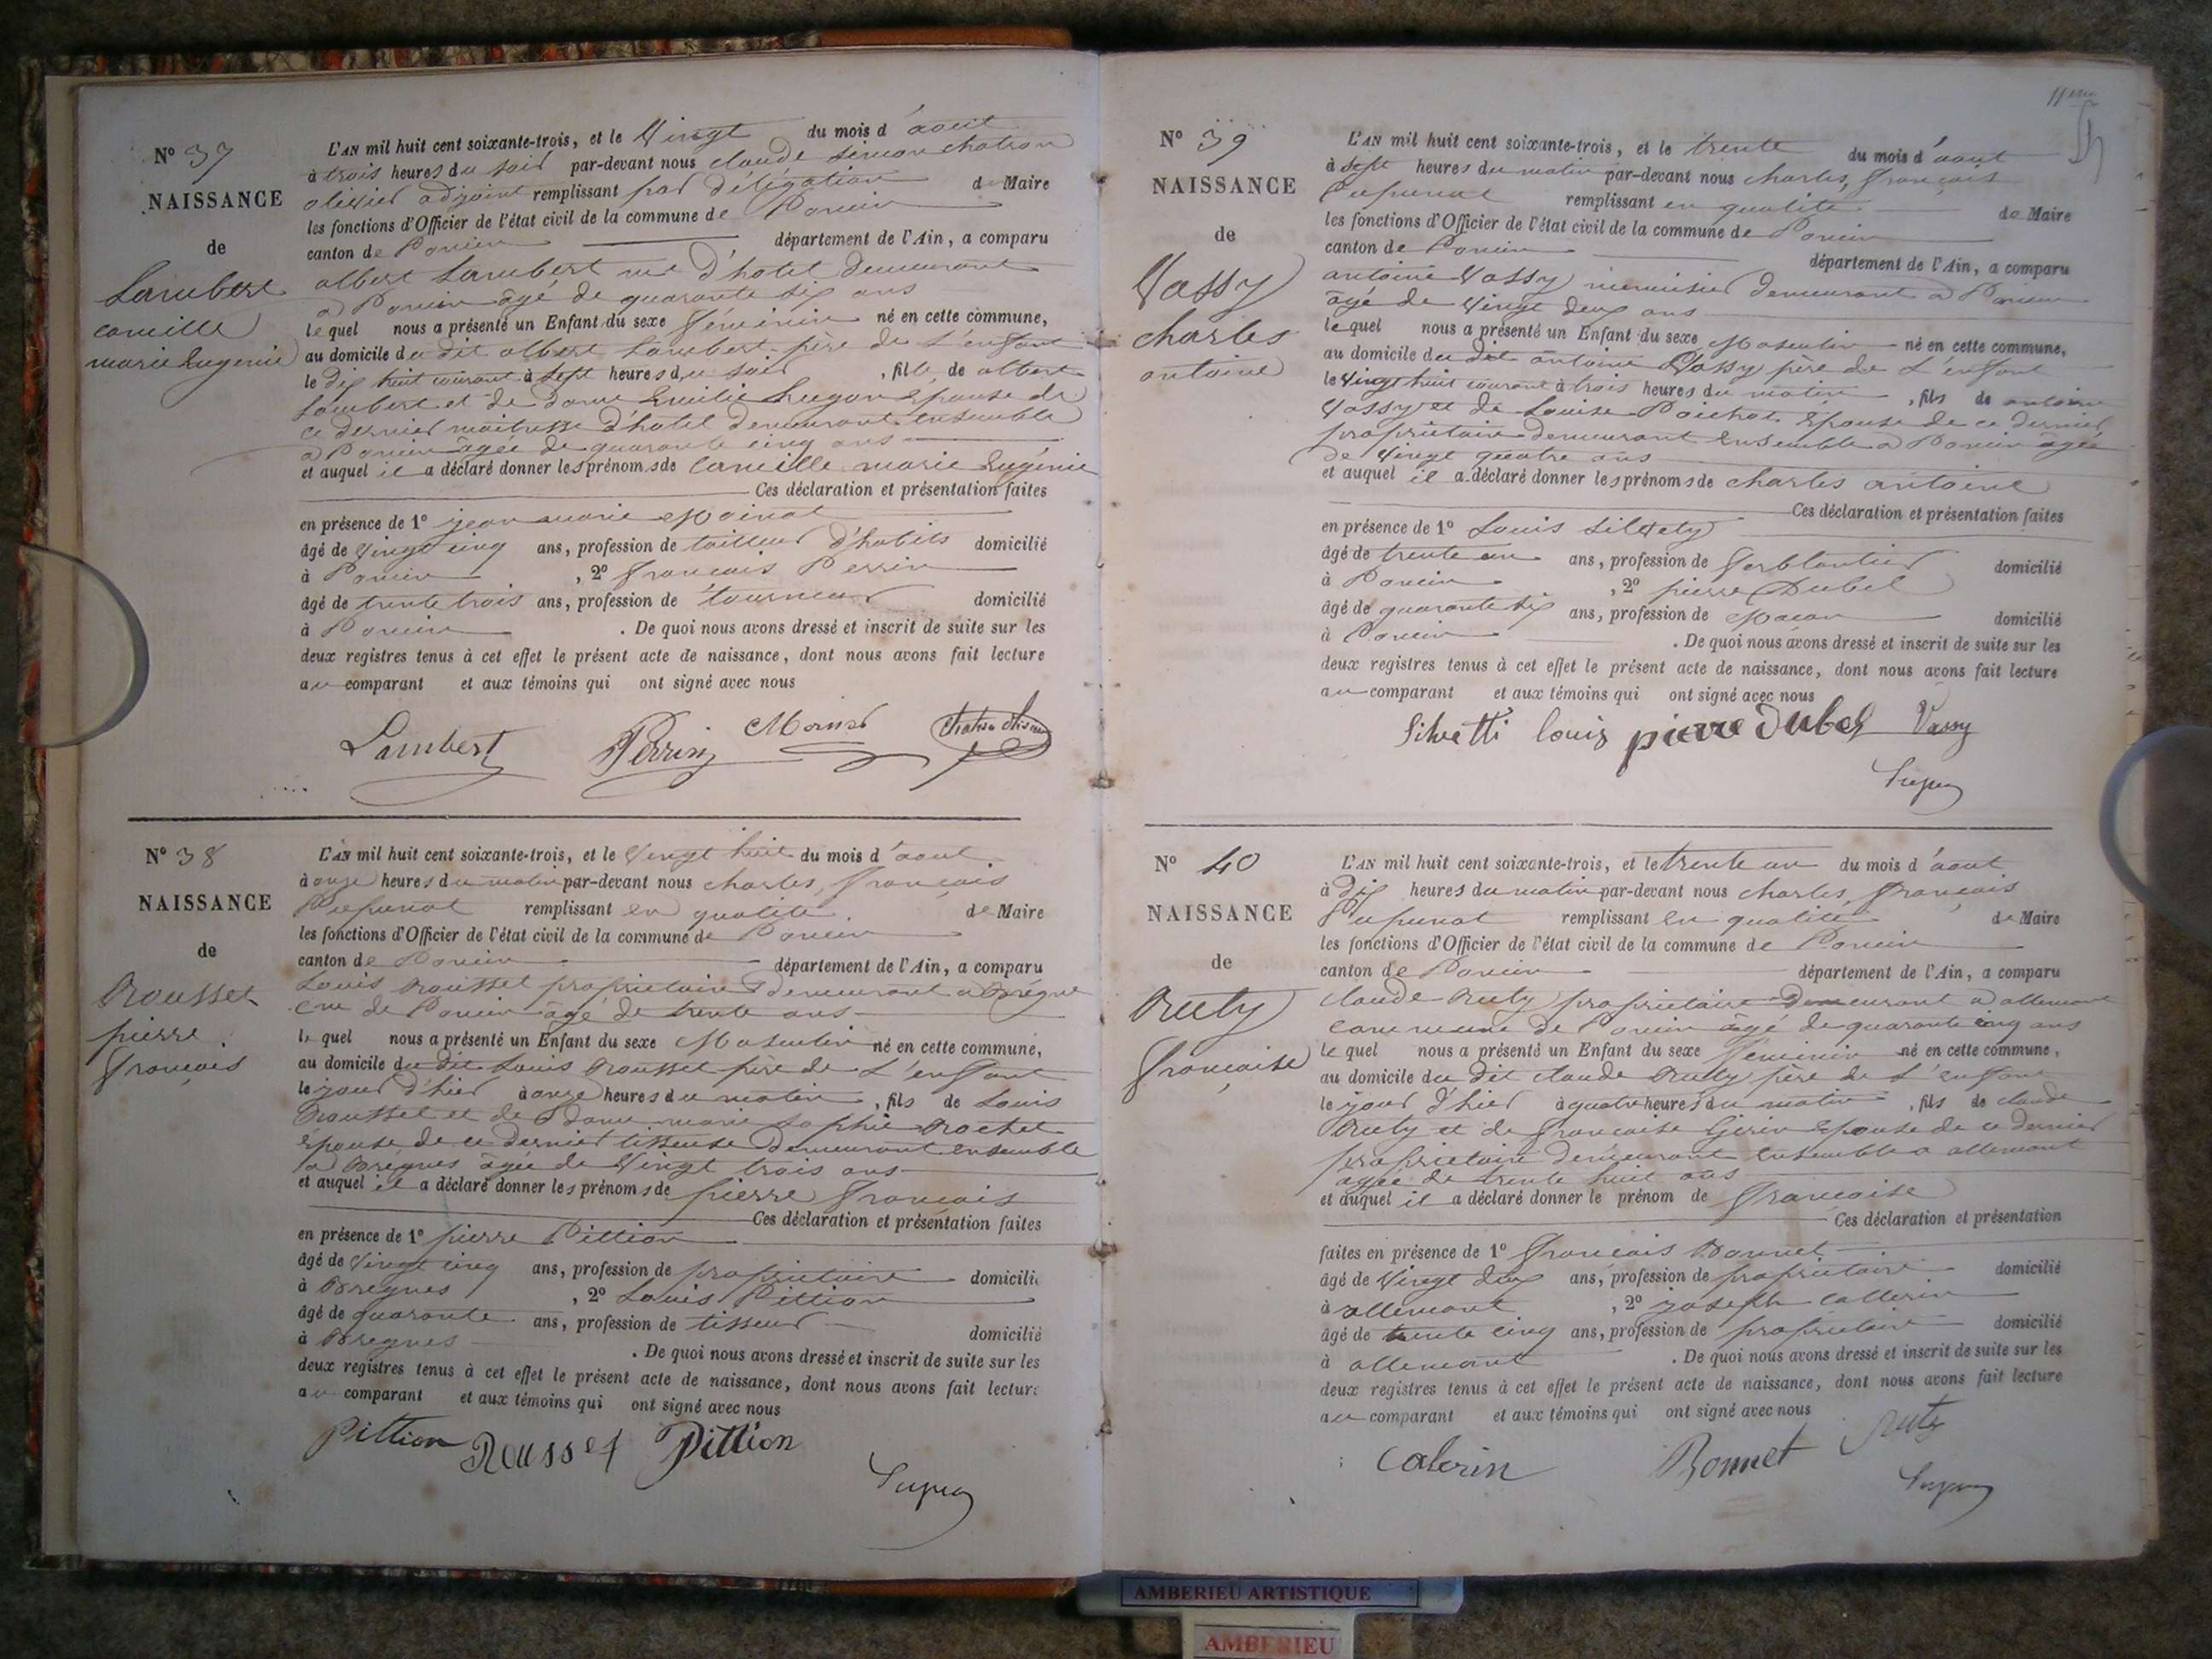 N° 37
NAISSANCE
de
Lambert
camille
marie Eugenie
L'AN mil huit cent soixante-trois, et le Vingt du mois d'aout
à trois heures du soir par-devant nous claude simon chatron
olivier adjoint remplissant par délégation de Maire
les fonctions d'Officier de l'état civil de la commune de Poncin
canton de Poncin département de l'Ain, a comparu
albert Lambert d'hotel demeurant
a Poncin âgé de quarante six ans
lequel nous a présenté un Enfant du sexe féminin né en cette commune,
au domicile du dit albert Lambert père de L'enfant
le dix huit courant à sept heures du soir, fille de albert
Lambert et de dame Emilie Epouse de
ce dernier maitresse d'hotel demeurant ensemble
a Poncin âgée de quarante cinq ans
et auquel il a déclaré donner les prénoms de Camille marie Eugénie
Ces déclaration et présentation faites
en présence de 1° jean marie Moinat
âgé de Vingt cinq ans, profession de tailleur d'habits domicilié
à Poncin, 2° françois Perrin
âgé de trente trois ans, profession de tourneur domicilié
à Poncin. De quoi nous avons dressé et inscrit de suite sur les
deux registres tenus à cet effet le présent acte de naissance, dont nous avons fait lecture
au comparant et aux témoins qui ont signé avec nous
Lambert Perrin
N° 38
NAISSANCE
de
Rousset
pierre
françois
L'AN mil huit cent soixante-trois, et le Vingt huit du mois d'aout
à onze heures du matin par-devant nous charles, françois
remplissant en qualité de Maire
les fonctions d'Officier de l'état civil de la commune de Poncin
canton de Poncin département de l'Ain, a comparu
Louis Rousset propriétaire demeurant a
de Poncin âgé de trente ans
lequel nous a présenté un Enfant du sexe Masculin né en cette commune,
au domicile du dit Louis Rousset père de L'enfant
le jour d'hier à onze heures du matin, fils de Louis
Rousset et de Dame marie Sophie Rochet
épouse de ce dernier tisseuse demeurant ensemble
a Bregnes âgée de Vingt trois ans
et auquel il a déclaré donner les prénoms de pierre françois
Ces déclaration et présentation faites
en présence de 1° pierre Pittion
âgé de Vingt cinq ans, profession de propriétaire domicilié
à Bregnes, 2° Louis Pittion
âgé de quarante ans, profession de tisseur domicilié
à Bregnes. De quoi nous avons dressé et inscrit de suite sur les
deux registres tenus à cet effet le présent acte de naissance, dont nous avons fait lecture
au comparant et aux témoins qui ont signé avec nous
Pittion Rousset Pittion
11eme
N° 39
NAISSANCE
de
Vassy
charles
antoine
L'AN mil huit cent soixante-trois, et le trente du mois d'aout
à sept heures du matin par-devant nous charles, françois
remplissant en qualité de Maire
les fonctions d'Officier de l'état civil de la commune de Poncin
canton de Poncin département de l'Ain, a comparu
antoine Vassy menuisier demeurant a Poncin
âgé de Vingt deux ans
lequel nous a présenté un Enfant du sexe Masculin né en cette commune,
au domicile du dit antoine Vassy père de L'enfant
le Vingt huit courant à trois heures du matin, fils de antoine
Vassy et de Louise Poichot Epouse de ce dernier
propriétaire demeurant Ensemble a Poncin âgée
de Vingt quatre ans
et auquel il a déclaré donner les prénoms de charles antoine
Ces déclaration et présentation faites
en présence de 1° Louis
âgé de trente un ans, profession de ferblantier domicilié
à Poncin, 2° pierre Dubel
âgé de quarante six ans, profession de Maçon domicilié
à Poncin. De quoi nous avons dressé et inscrit de suite sur les
deux registres tenus à cet effet le présent acte de naissance, dont nous avons fait lecture
au comparant et aux témoins qui ont signé avec nous
Silvetti louis pierre dubel Vassy
N° 40
NAISSANCE
de
Ruty
françoise
L'AN mil huit cent soixante-trois, et le trente un du mois d'aout
à dix heures du matin par-devant nous charles, françois
remplissant en qualité de Maire
les fonctions d'Officier de l'état civil de la commune de Poncin
canton de Poncin département de l'Ain, a comparu
claude Ruty propriétaire demeurant a allement
commune de Poncin âgé de quarante cinq ans
lequel nous a présenté un Enfant du sexe féminin né en cette commune,
au domicile du dit claude Ruty père de L'enfant
le jour d'hier à quatre heures du matin, fils de claude
Ruty et de françoise Girin Epouse de ce dernier
propriétaire demeurant Ensemble a allement
agée de trente huit ans
et auquel il a déclaré donner le prénom de françoise
Ces déclaration et présentation
faites en présence de 1° françois Bonnet
âgé de Vingt deux ans, profession de propriétaire domicilié
à allement, 2° joseph Callerin
âgé de trente cinq ans, profession de propriétaire domicilié
à allement. De quoi nous avons dressé et inscrit de suite sur les
deux registres tenus à cet effet le présent acte de naissance, dont nous avons fait lecture
au comparant et aux témoins qui ont signé avec nous
Calerin Bonnet Ruty
AMBERIEU ARTISTIQUE
AMBERIEU